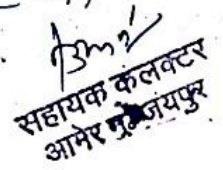 सहायक कलक्टर
आमेर जयपुर